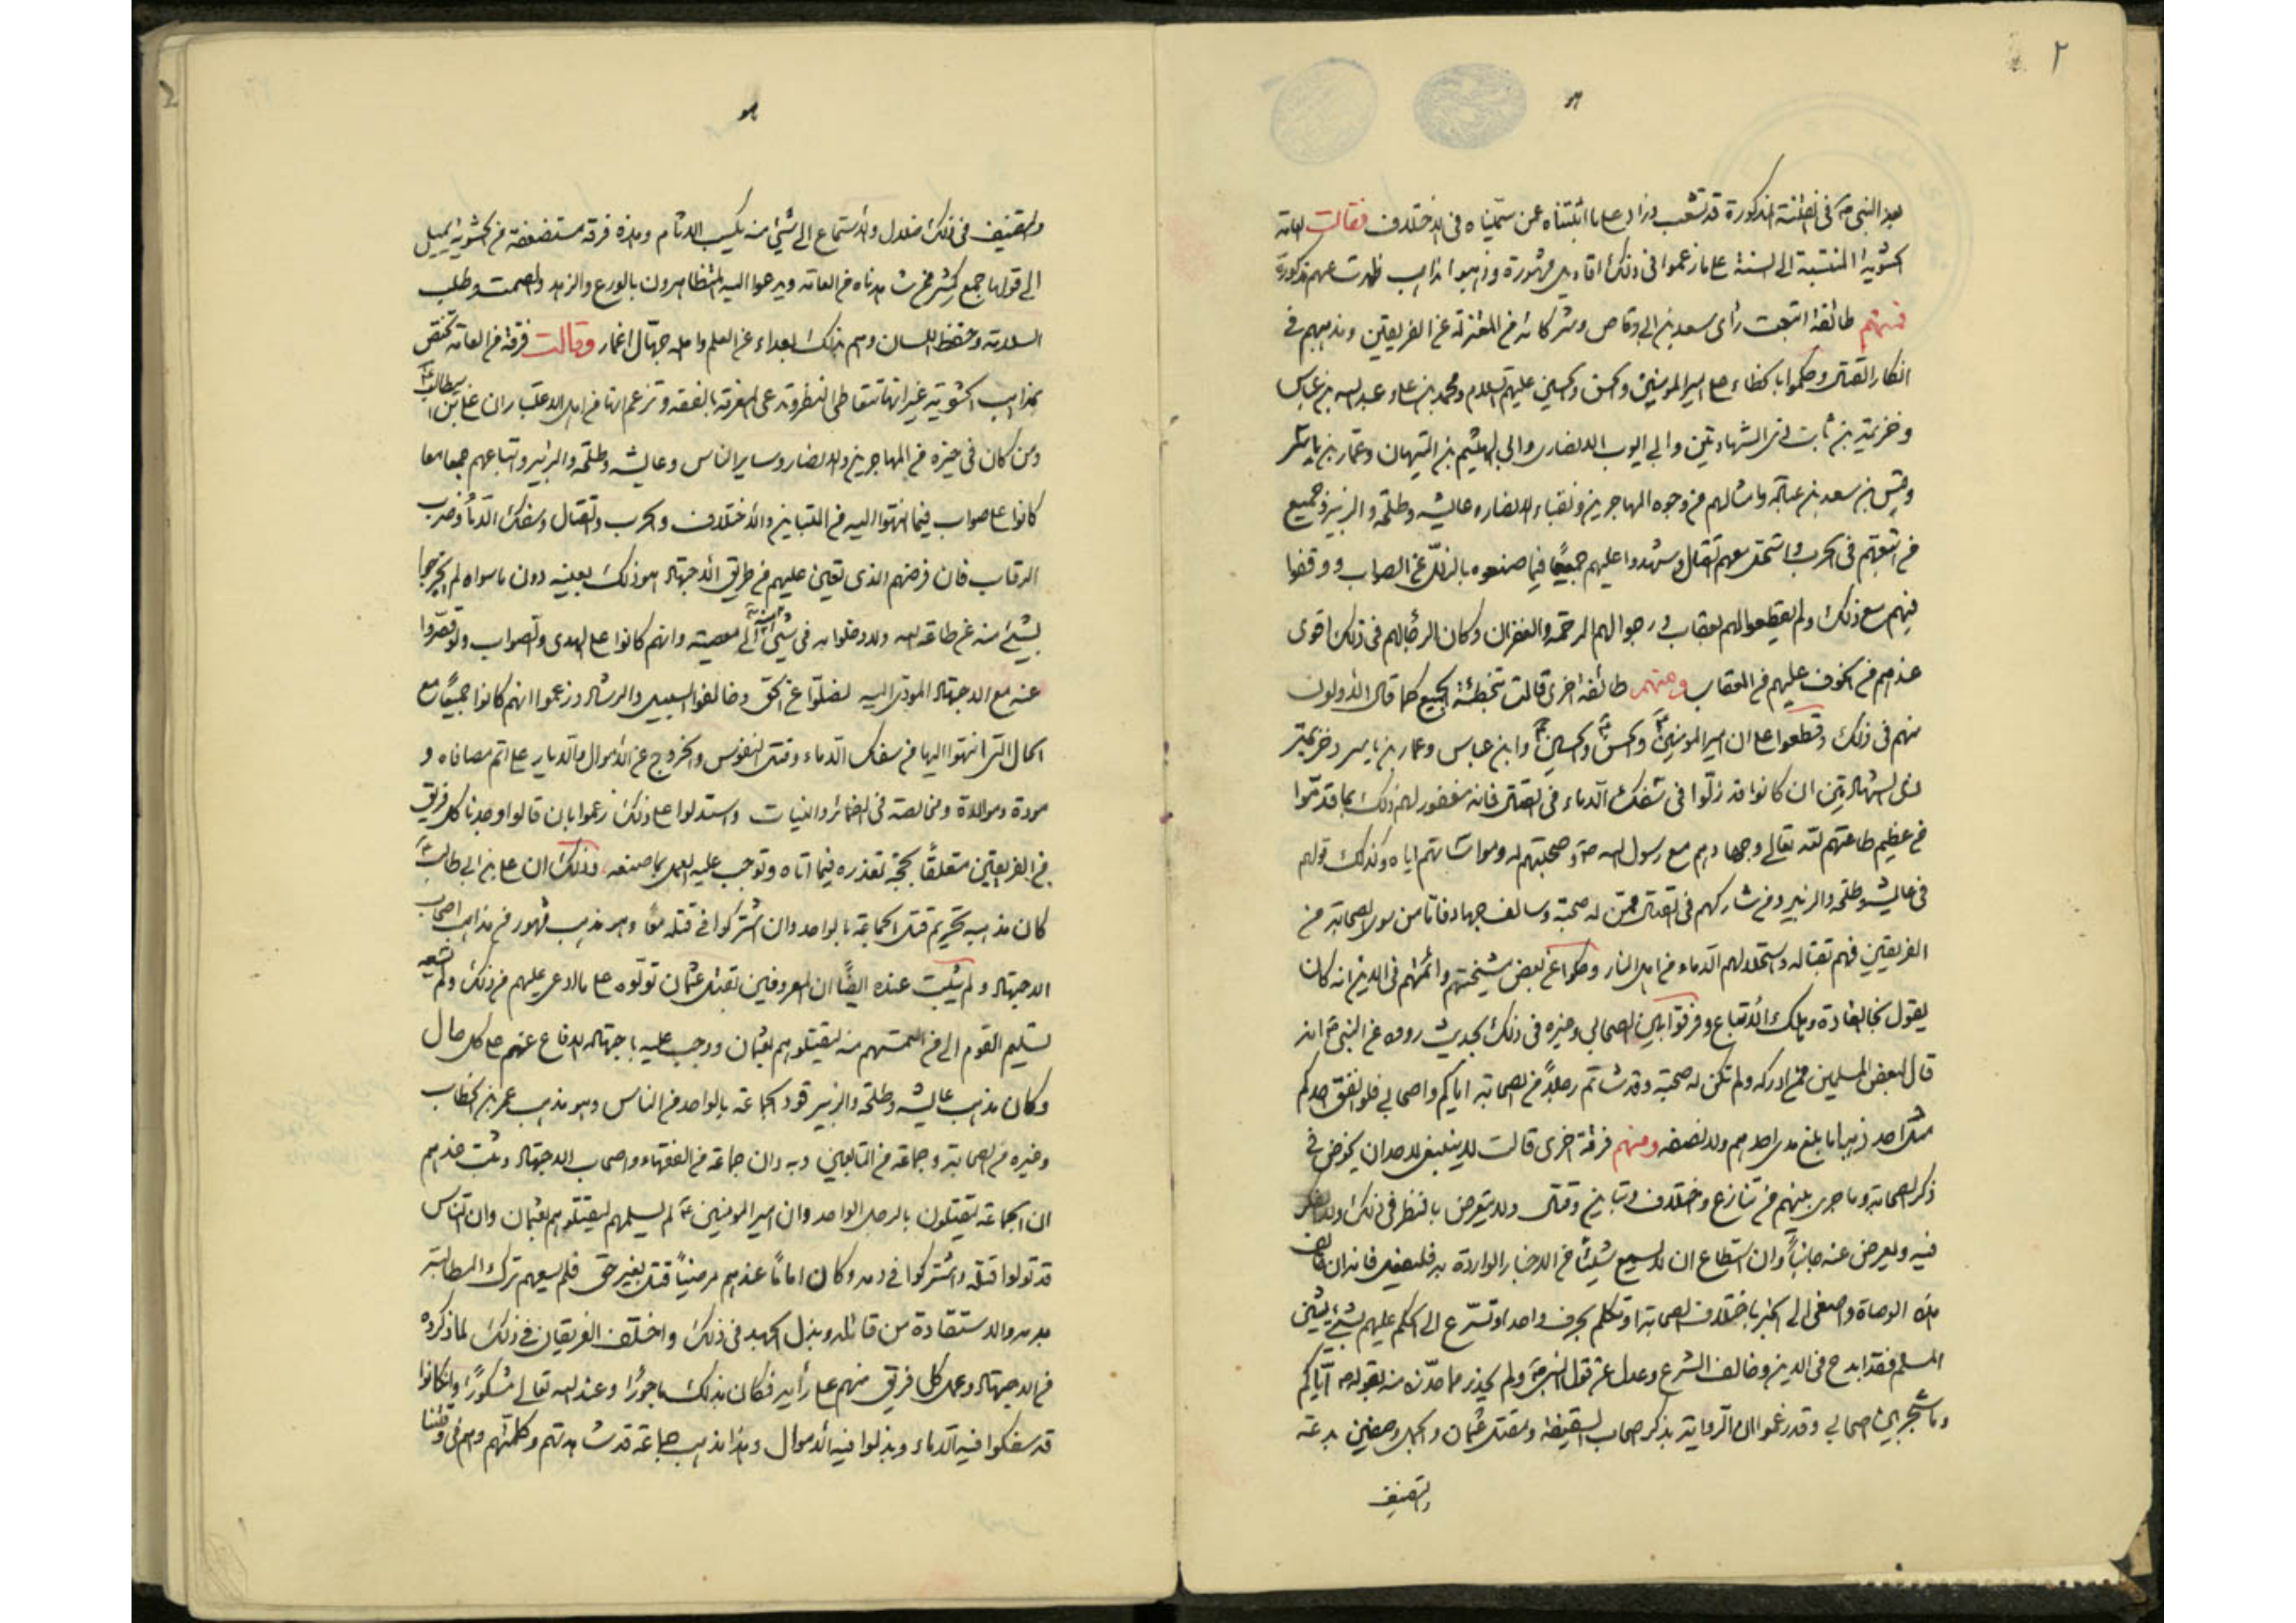 ٢
بعد النبي ص في الفتنة المذكورة قد تشعب وزاد على ما اثبتناه عمن سميناه في الاختلاف فقالت العامة
الحشوية المنتسبة الى السنة على ما زعموا في ذلك اقاويل مشهورة وذهبوا مذاهب ظهرت عنهم مذكورة
فمنهم طائفة اتبعت رأى سعد بن ابي وقاص وشركائه من المعتزلة عن الفريقين ومذهبهم في
انكار القتال وحكموا بالخطاء على امير المومنين والحسن والحسين عليهم السلام ومحمد بن على وعبد الله بن عباس
وخزيمة بن ثابت ذى الشهادتين وابي ايوب الانصارى وابي الهيثم بن التيهان وعمار بن ياسر
وقيس بن سعد بن عبادة وامثالهم من وجوه المهاجرين ونقباء الانصار وعايشه وطلحة والزبير وجميع
من اتبعهم في الحرب واستحل معهم القتال وشهدوا عليهم جميعًا فيما صنعوه بالزلل عن الصواب ووقفوا
فيهم مع ذلك ولم يقطعوا لهم بعقاب ورجوا لهم الرحمة والغفران وكان الرجا لهم في ذلك اقوى
عندهم من الخوف عليهم من العقاب ومنهم طائفة اخرى قالت بتخطئة الجميع كما قال الاولون
منهم في ذلك وقطعوا على ان امير المومنين ع والحسن ع والحسين ع وابن عباس وعمار بن ياسر وخزيمة
ذى الشهادتين ان كانوا قد زلوا في سفك الدماء في القتال فانه مغفور لهم ذلك بما قدموا
من عظيم طاعتهم لله تعالى وجهادهم مع رسول الله ص وصحبتهم له ومواساتهم اياه وكذلك قولهم
في عايشه وطلحة والزبير ومن شاركهم في القتال ممن له صحبة وسالف جهاد فاما من سوى الصحابة من
الفريقين فهم بقتاله واستحلالهم الدماء من اهل النار وحكوا عن بعض مشيختهم وائمتهم في الدين انه كان
يقول نجا القادة وهلك الاتباع وفرقوا بين الصحابي وغيره في ذلك بحديث رووه عن النبي ص انه
قال لبعض المسلمين ممن ادركه ولم تكن له صحبة وقد شاتم رجلاً من الصحابة اياكم واصحابي فلو انفق احدكم
مثل احد ذهبا ما بلغ مد احدهم ولا نصفه ومنهم فرقة اخرى قالت لا ينبغى لاحد ان يخوض في
ذكر الصحابة وما جرى بينهم من تنازع واختلاف وتباين وقتال ولا يتعرض بالنظر في ذلك ولا الفكر
فيه ويعرض عنه جانبًا وان استطاع ان لا يسمع شيئًا من الاخبار الواردة به فليفعل فانه ان خالف
هذه الوصاة واصغى الى الخبر باختلاف الصحابة او تكلم بحرف واحد او تسرع الى الحكم عليهم بشيئ يشين
المسلم فقد ابدع في الدين وخالف الشرع وعدل عن قول النبي ص ولم يحذر مما حذره منه بقوله ص اياكم
وما شجر بين اصحابي وقد زعموا ان الرواية بذكر اصحاب السقيفة ومقتل عثمان والجمل وصفين بدعة
والتصنيف
والتصنيف في ذلك ضلال والاستماع الى شيئ منه يكسب الاثام وهذه فرقة مستضعفة من الحشوية يميل
الى قولها جمع كثير ممن شاهدناه من العامة ويدعوا اليه المتظاهرون بالورع والزهد والصمت وطلب
السلامة وحفظ اللسان وهم بذلك بعداء عن العلم واهله جهال اغمار وقالت فرقة من العامة تختص
بمذاهب الحشوية غير انها تتعاطى النظر وتدعى المعرفة بالفقه وتزعم انها من اهل الاعتبار ان على بن ابيطالب ع
ومن كان في حيزه من المهاجرين والانصار وساير الناس وعايشه وطلحة والزبير واتباعهم جميعا معا
كانوا على صواب فيما انتهوا اليه من التباين والاختلاف والحرب والقتال وسفك الدماء وضرب
الرقاب فان فرضهم الذى تعين عليهم من طريق الاجتهاد هو ذلك بعينه دون ما سواه لم يخرجوا
بشيئ منه عن طاعة الله ولا دخلوا به في شيئ الى معصيته وانهم كانوا على الهدى والصواب ولو قصروا
عنه مع الاجتهاد المودى اليه لضلوا عن الحق وخالفوا السبيل والرشاد وزعموا انهم كانوا جميعًا مع
الحال التى انتهوا اليها من سفك الدماء وقتل النفوس والخروج عن الاموال والديار على اتم مصافاه و
مودة وموالاة ومخالصة في الضمائر والنيات واستدلوا على ذلك زعموا بان قالوا وجدنا كل فريق
من الفريقين متعلقًا بحجة تعذره فيما اتاه وتوجب عليه العمل بما صنعه وذلك ان على بن ابي طالب ع
كان مذهبه تحريم قتل الجماعة بالواحد وان اشتركوا في قتله معًا وهو مذهب مشهور من مذاهب اصحاب
الاجتهاد ولم يثبت عنده ايضًا ان المعروفين بقتل عثمان تولوه على ما ادعى عليهم من ذلك ولم يسعه
تسليم القوم الى من التمسهم منه ليقتلوهم بعثمان ووجب عليه باجتهاده الدفاع عنهم على كل حال
وكان مذهب عايشه وطلحة والزبير قود الجماعة بالواحد من الناس وهو مذهب عمر بن الخطاب
وغيره من الصحابة وجماعة من التابعين وبه دان جماعة من الفقهاء واصحاب الاجتهاد وثبت عندهم
ان الجماعة يقتلون بالرجل الواحد وان امير المومنين ع لم يسلمهم ليقتلوهم بعثمان وان الناس
قد تولوا قتله واشتركوا في دمه وكان امامًا عندهم مرضيًا قتل بغير حق فلم يسعهم ترك المطالبة
بدمه والاستقادة من قاتله وبذل الجهد في ذلك واختلف الفريقان في ذلك لما ذكروه
من الاجتهاد وعمل كل فريق منهم على رأيه فكان بذلك ماجورًا وعند الله تعالى مشكورًا وان كانوا
قد سفكوا فيه الدماء وبذلوا فيه الاموال وهذا مذهب جماعة قد شاهدتهم وكلمتهم وهم في وقتنا